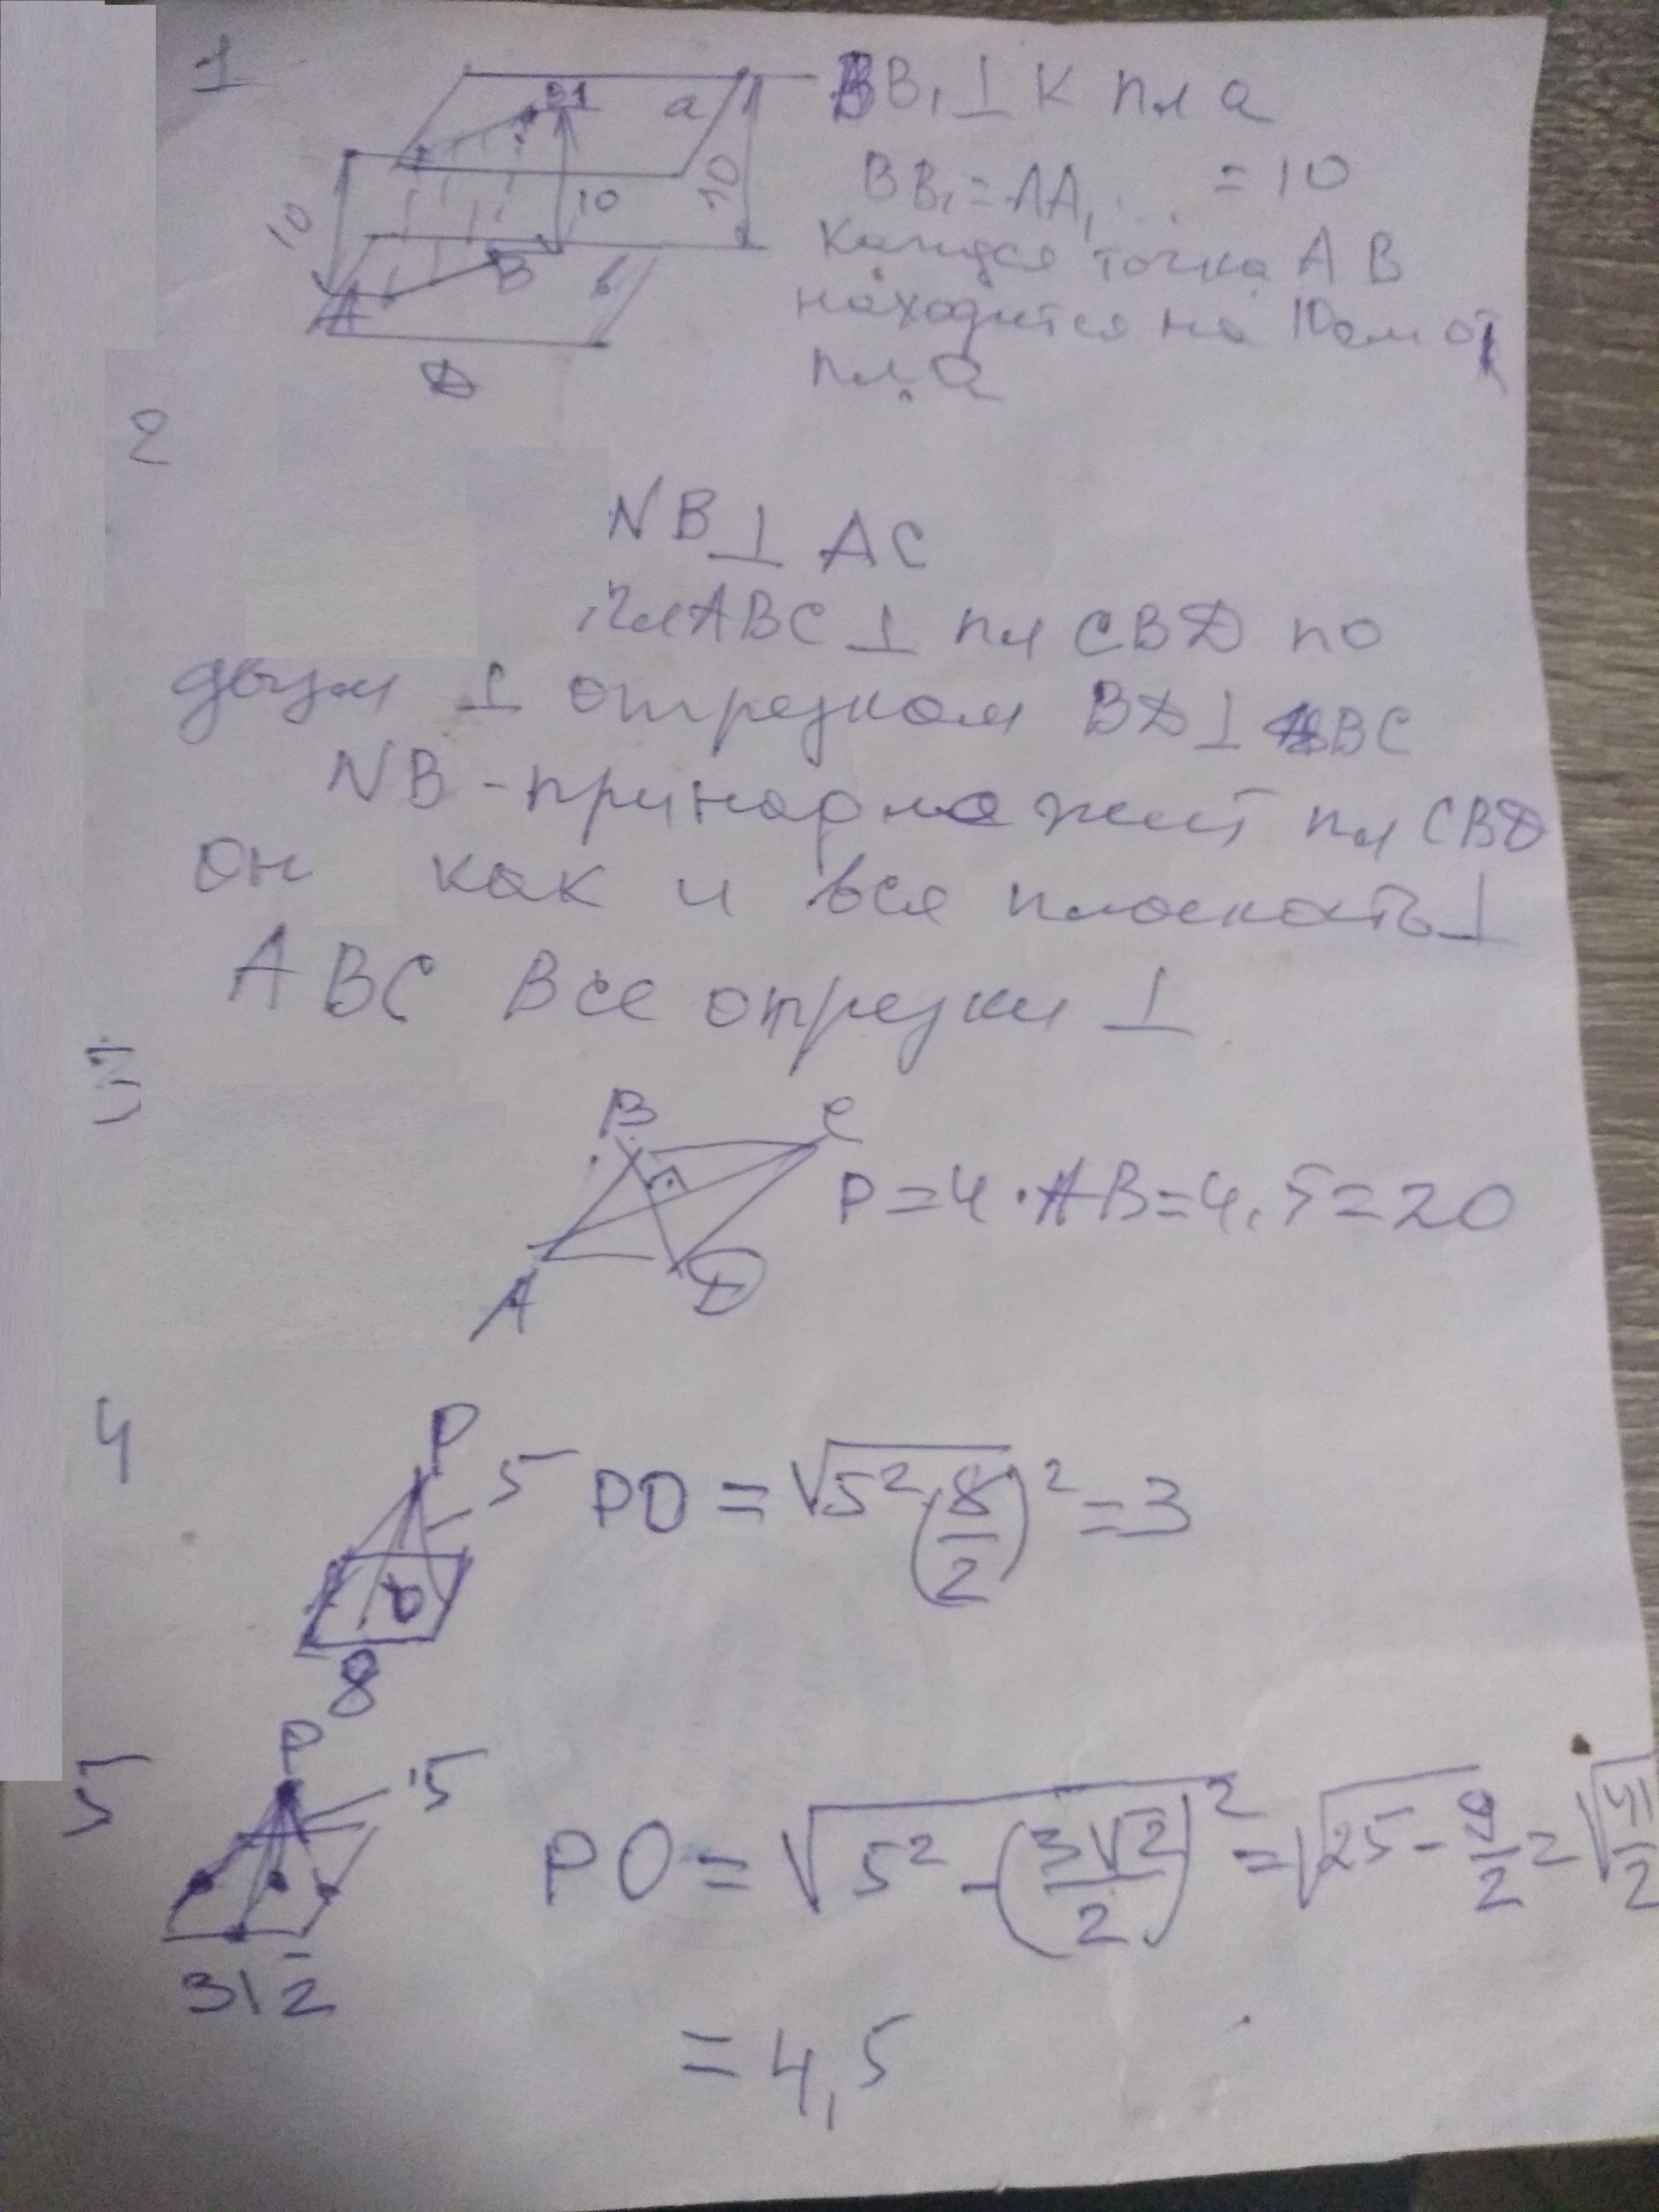 1
B1
a
10
10
10
A
B
b
D
BB₁ ⊥ к пл a
BB₁ = AA₁ ... = 10
Каждая точка A B
находится на 10см от
пл. a
2
NB ⊥ AC
пл ABC ⊥ пл CBD по
двум ⊥ отрезкам BD ⊥ BC
NB - принадлежит пл CBD
он как и вся плоскость ⊥
ABC Все отрезки ⊥
3
B
C
A
D
P = 4 · AB = 4 . 5 = 20
4
P
5
O
8
PO = √5² - (8/2)² = 3
5
P
5
3√2
PO = √5² - (3√2/2)² = √25 - 9/2 = √41/2
= 4,5